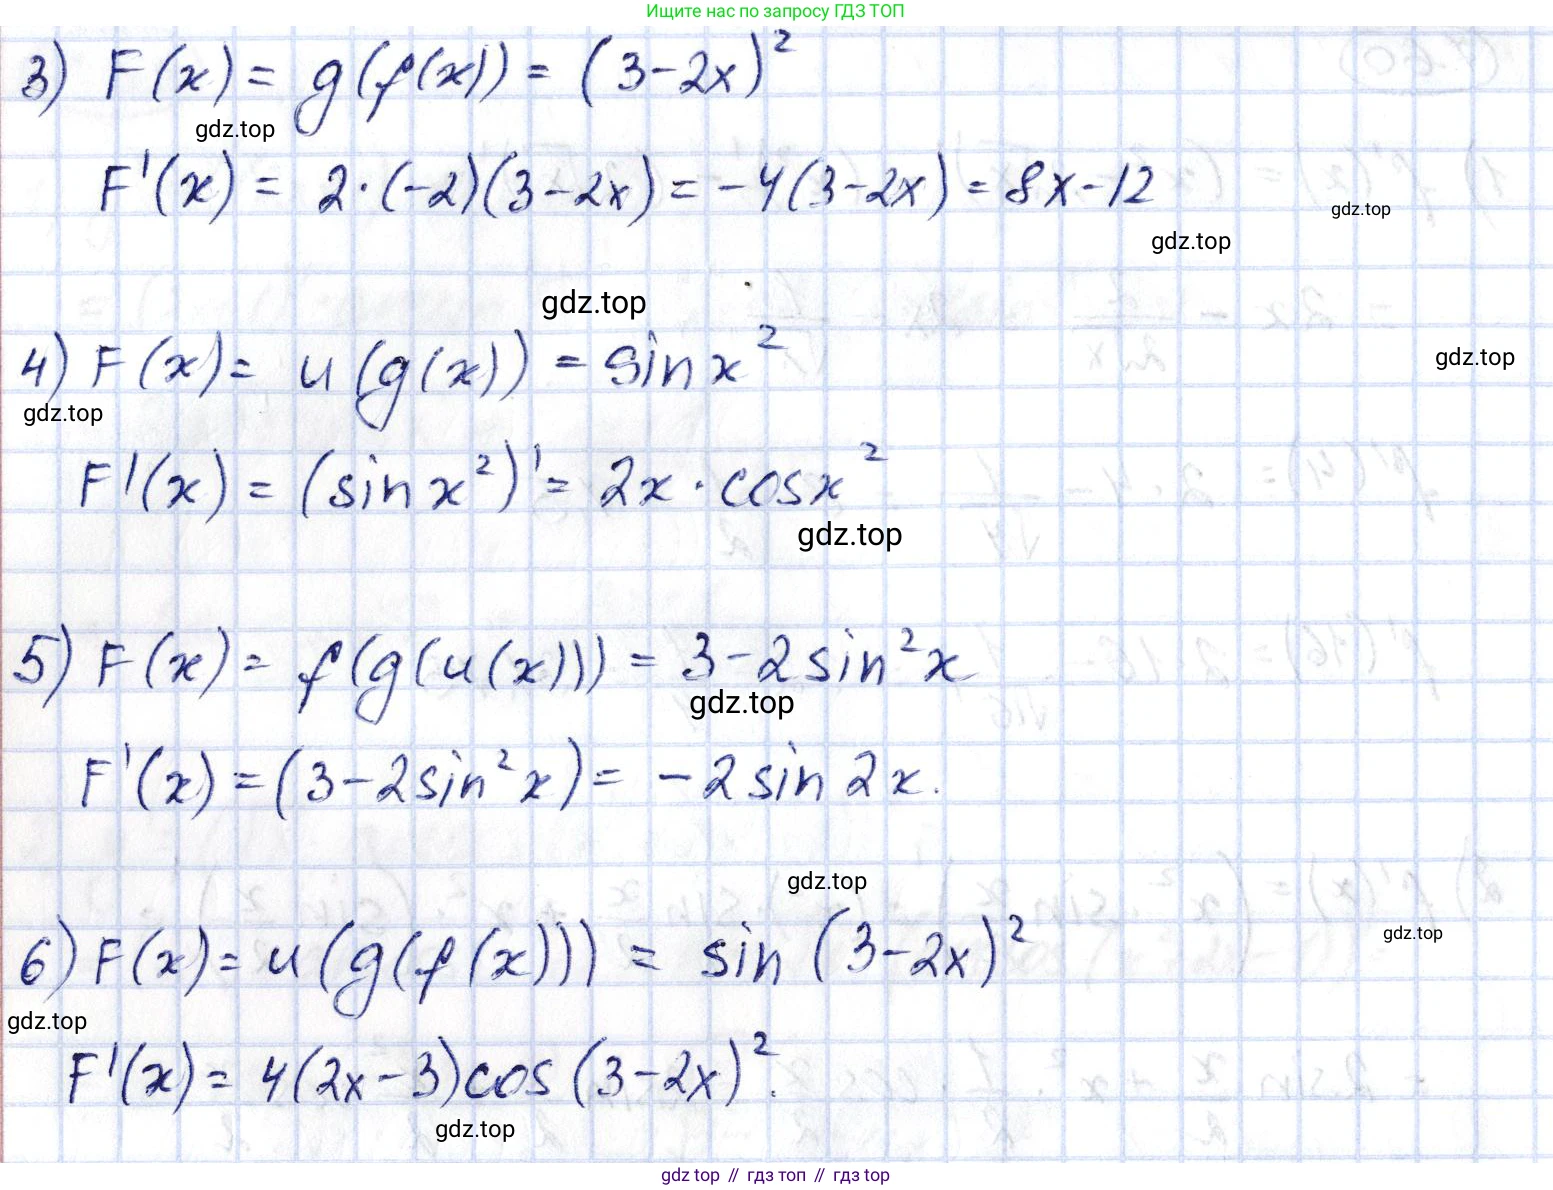 Ищите нас по запросу ГДЗ ТОП
3) F(x) = g(f(x)) = (3-2x)²
gdz.top
F'(x) = 2·(-2)(3-2x) = -4(3-2x) = 8x-12
gdz.top
gdz.top
gdz.top
4) F(x) = u(g(x)) = sin x²
gdz.top
gdz.top
F'(x) = (sin x²)' = 2x · cos x²
gdz.top
5) F(x) = f(g(u(x))) = 3-2sin²x
gdz.top
F'(x) = (3-2sin²x) = -2 sin 2x.
gdz.top
6) F(x) = u(g(f(x))) = sin (3-2x)²
gdz.top
gdz.top
F'(x) = 4(2x-3)cos(3-2x)².
gdz.top
gdz top // гдз топ // гдз top